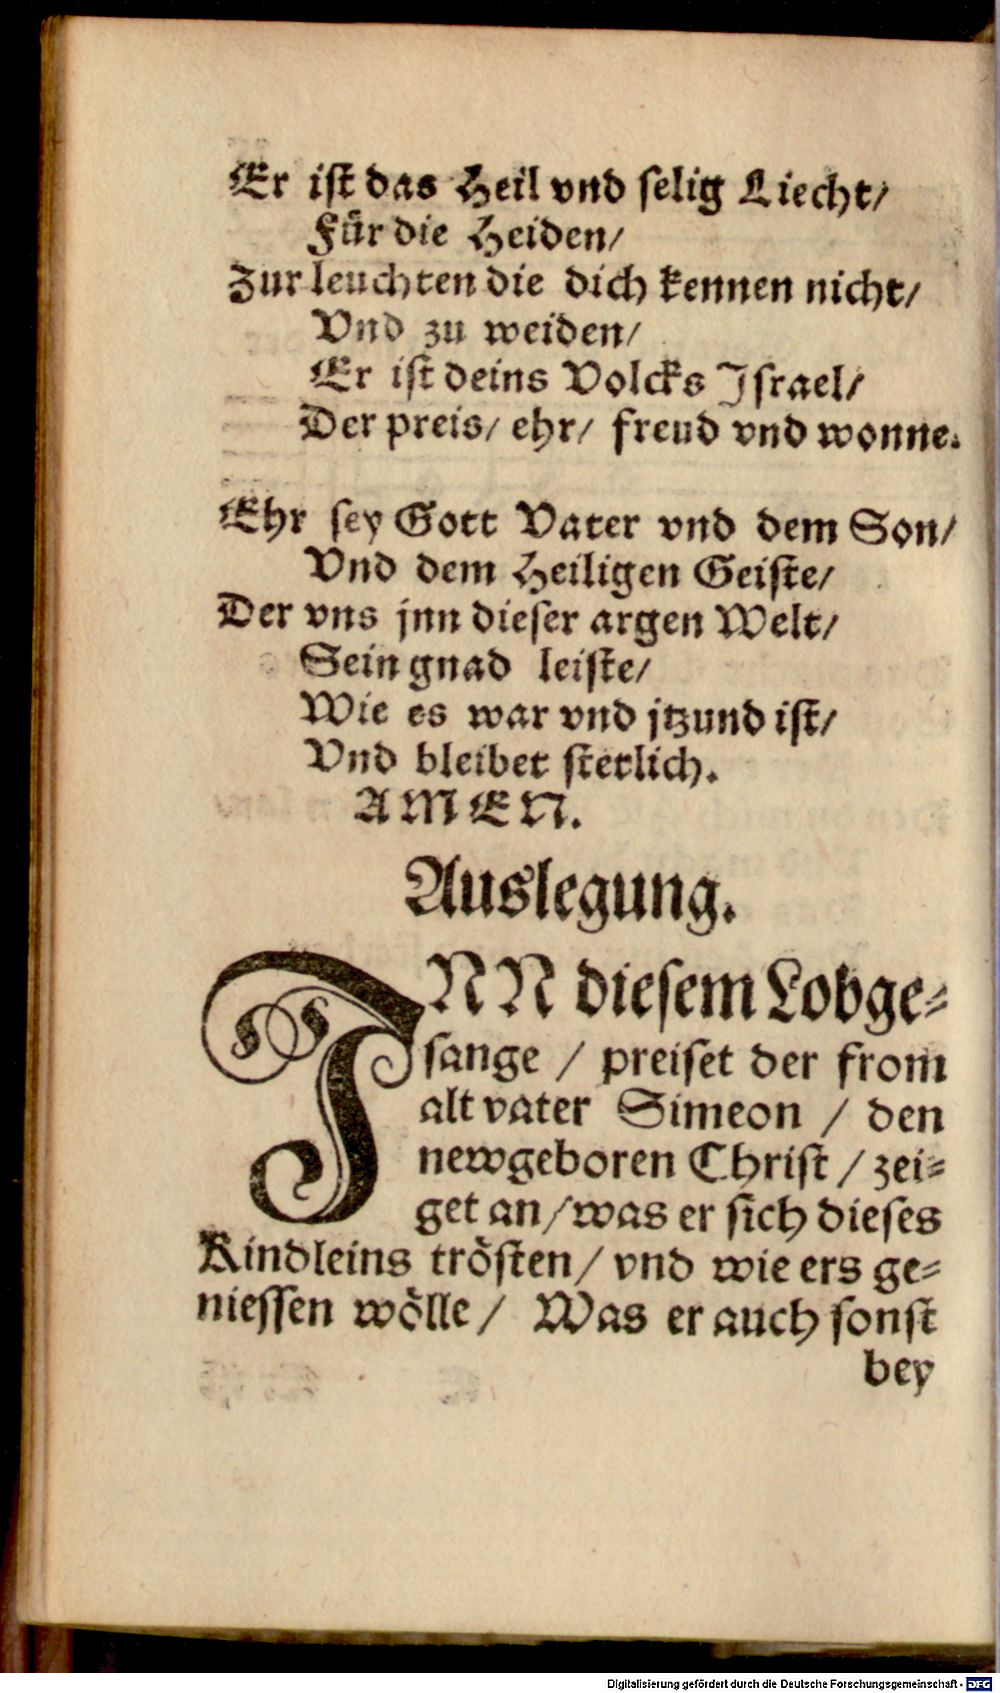 Er ist das Heil vnd selig Liecht/
Für die Heiden/
Zur leuchten die dich kennen nicht/
Vnd zu weiden/
Er ist deins Volcks Israel/
Der preis/ ehr/ freud vnd wonne.
Ehr sey Gott Vater vnd dem Son/
Vnd dem Heiligen Geiste/
Der vns jnn dieser argen Welt/
Sein gnad leiste/
Wie es war vnd jtzund ist/
Vnd bleibet stetlich.
AMEN.
Auslegung.
INN diesem Lobge-
sange / preiset der from
alt vater Simeon / den
newgeboren Christ / zei-
get an/ was er sich dieses
Kindleins trösten/ vnd wie ers ge-
niessen wölle/ Was er auch sonst
bey
Digitalisierung gefördert durch die Deutsche Forschungsgemeinschaft - DFG